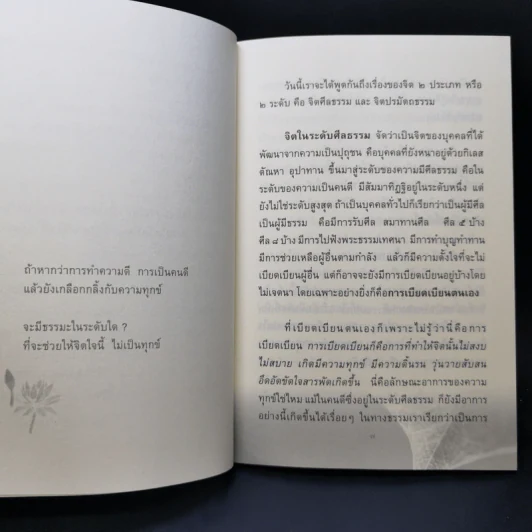 ถ้าหากว่าการทำความดี การเป็นคนดี
แล้วยังเกลือกกลิ้งกับความทุกข์
จะมีธรรมะในระดับใด ?
ที่จะช่วยให้จิตใจนี้ ไม่เป็นทุกข์
วันนี้เราจะได้พูดกันถึงเรื่องของจิต ๒ ประเภท หรือ
๒ ระดับ คือ จิตศีลธรรม และ จิตปรมัตถธรรม
จิตในระดับศีลธรรม จัดว่าเป็นจิตของบุคคลที่ได้
พัฒนาจากความเป็นปุถุชน คือบุคคลที่ยังหนาอยู่ด้วยกิเลส
ตัณหา อุปาทาน ขึ้นมาสู่ระดับของความมีศีลธรรม คือใน
ระดับของความเป็นคนดี มีสัมมาทิฏฐิอยู่ในระดับหนึ่ง แต่
ยังไม่ใช่ระดับสูงสุด ถ้าเป็นบุคคลทั่วไปก็เรียกว่าเป็นผู้มีศีล
เป็นผู้มีธรรม คือมีการรับศีล สมาทานศีล ศีล ๕ บ้าง
ศีล ๘ บ้าง มีการไปฟังพระธรรมเทศนา มีการทำบุญทำทาน
มีการช่วยเหลือผู้อื่นตามกำลัง แล้วก็มีความตั้งใจที่จะไม่
เบียดเบียนผู้อื่น แต่ก็อาจจะยังมีการเบียดเบียนอยู่บ้างโดย
ไม่เจตนา โดยเฉพาะอย่างยิ่งก็คือการเบียดเบียนตนเอง
ที่เบียดเบียนตนเองก็เพราะไม่รู้ว่านี่คือการ
เบียดเบียน การเบียดเบียนก็คือการที่ทำให้จิตนั้นไม่สงบ
ไม่สบาย เกิดมีความทุกข์ มีความดิ้นรน วุ่นวายสับสน
อึดอัดขัดใจสารพัดเกิดขึ้น นี่คือลักษณะอาการของความ
ทุกข์ใช่ไหม แม้ในคนดีซึ่งอยู่ในระดับศีลธรรม ก็ยังมีอาการ
อย่างนี้เกิดขึ้นได้เรื่อยๆ ในทางธรรมเราเรียกว่าเป็นการ